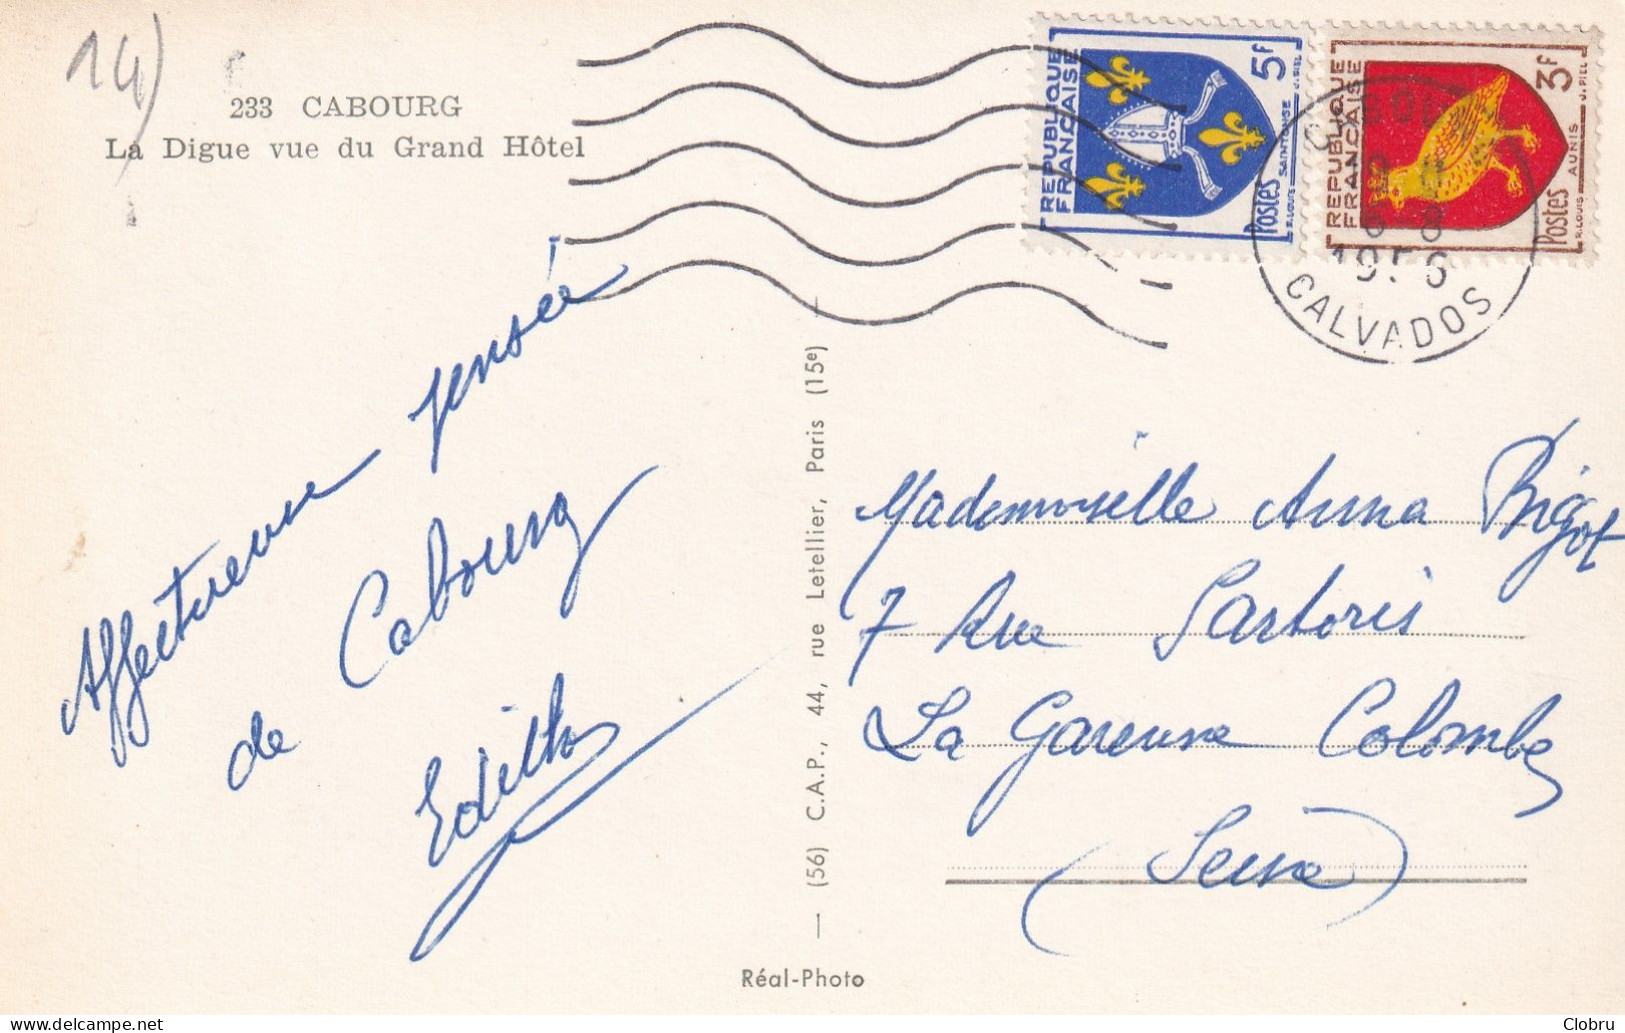 14)
233 CABOURG
La Digue vue du Grand Hôtel
Affectueuse pensée
de Cabourg
Edith
(56) C.A.P., 44, rue Letellier, Paris (15e)
Réal-Photo
REPUBLIQUE
FRANÇAISE
5F
Postes
SAINTONGE
R. LOUIS
J. PIEL
REPUBLIQUE
FRANÇAISE
3F
Postes
AUNIS
R. LOUIS
J. PIEL
1956
CALVADOS
Mademoiselle Anna Bigot
7 Rue Sartoris
La Garenne Colombes
(Seine)
Clobru